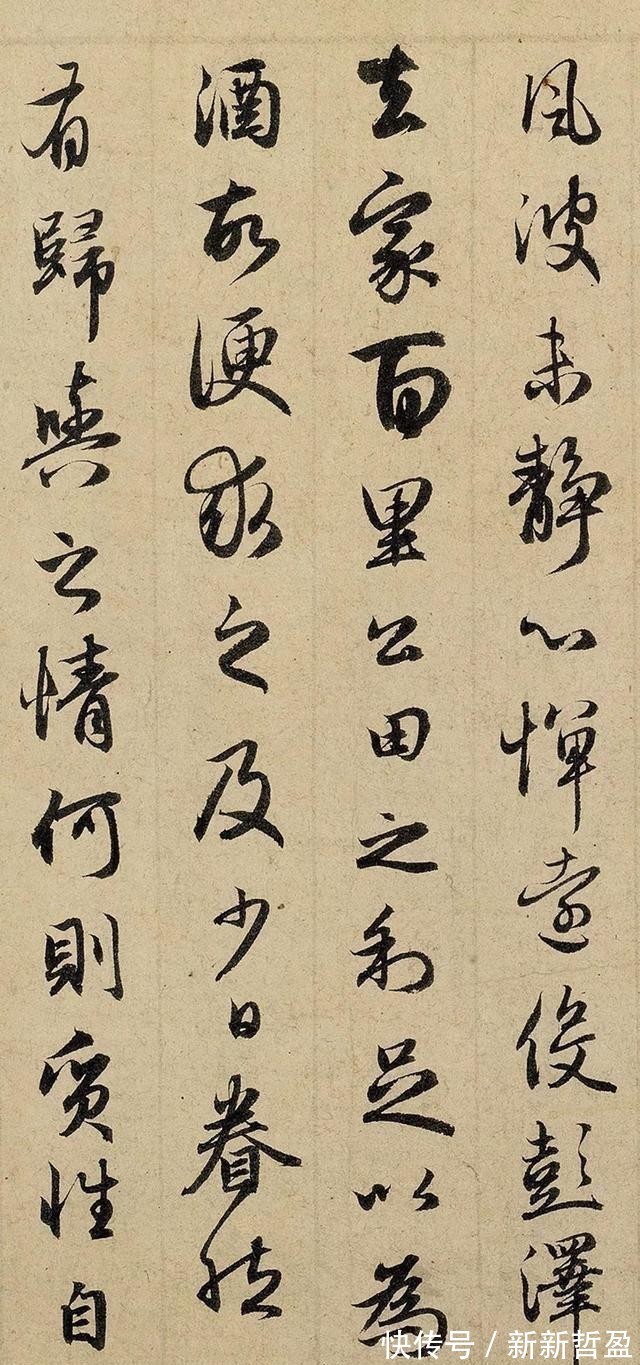 風波未静心惮遠役彭澤
去家百里公田之利足以為
酒故便求之及少日眷然
有歸與之情何則質性自
快传号/新新哲盈